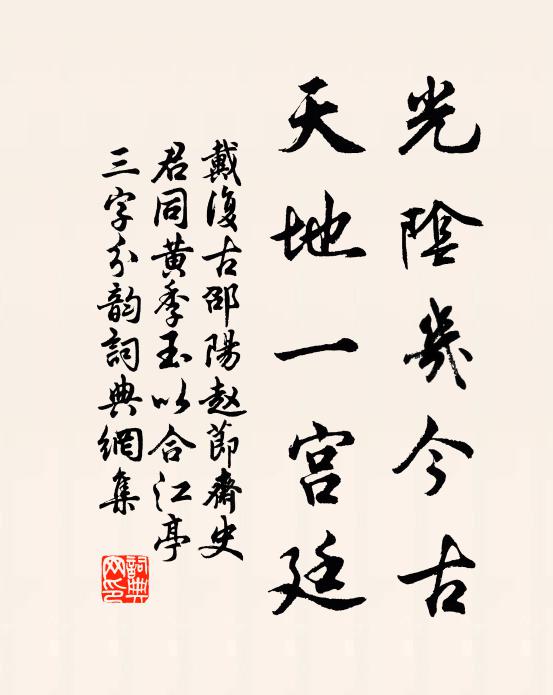 光陰幾今古
天地一宫廷
戴復古邵陽赵節齋史
君同黄季玉以合江亭
三字分韵詞典網集
詞典网印